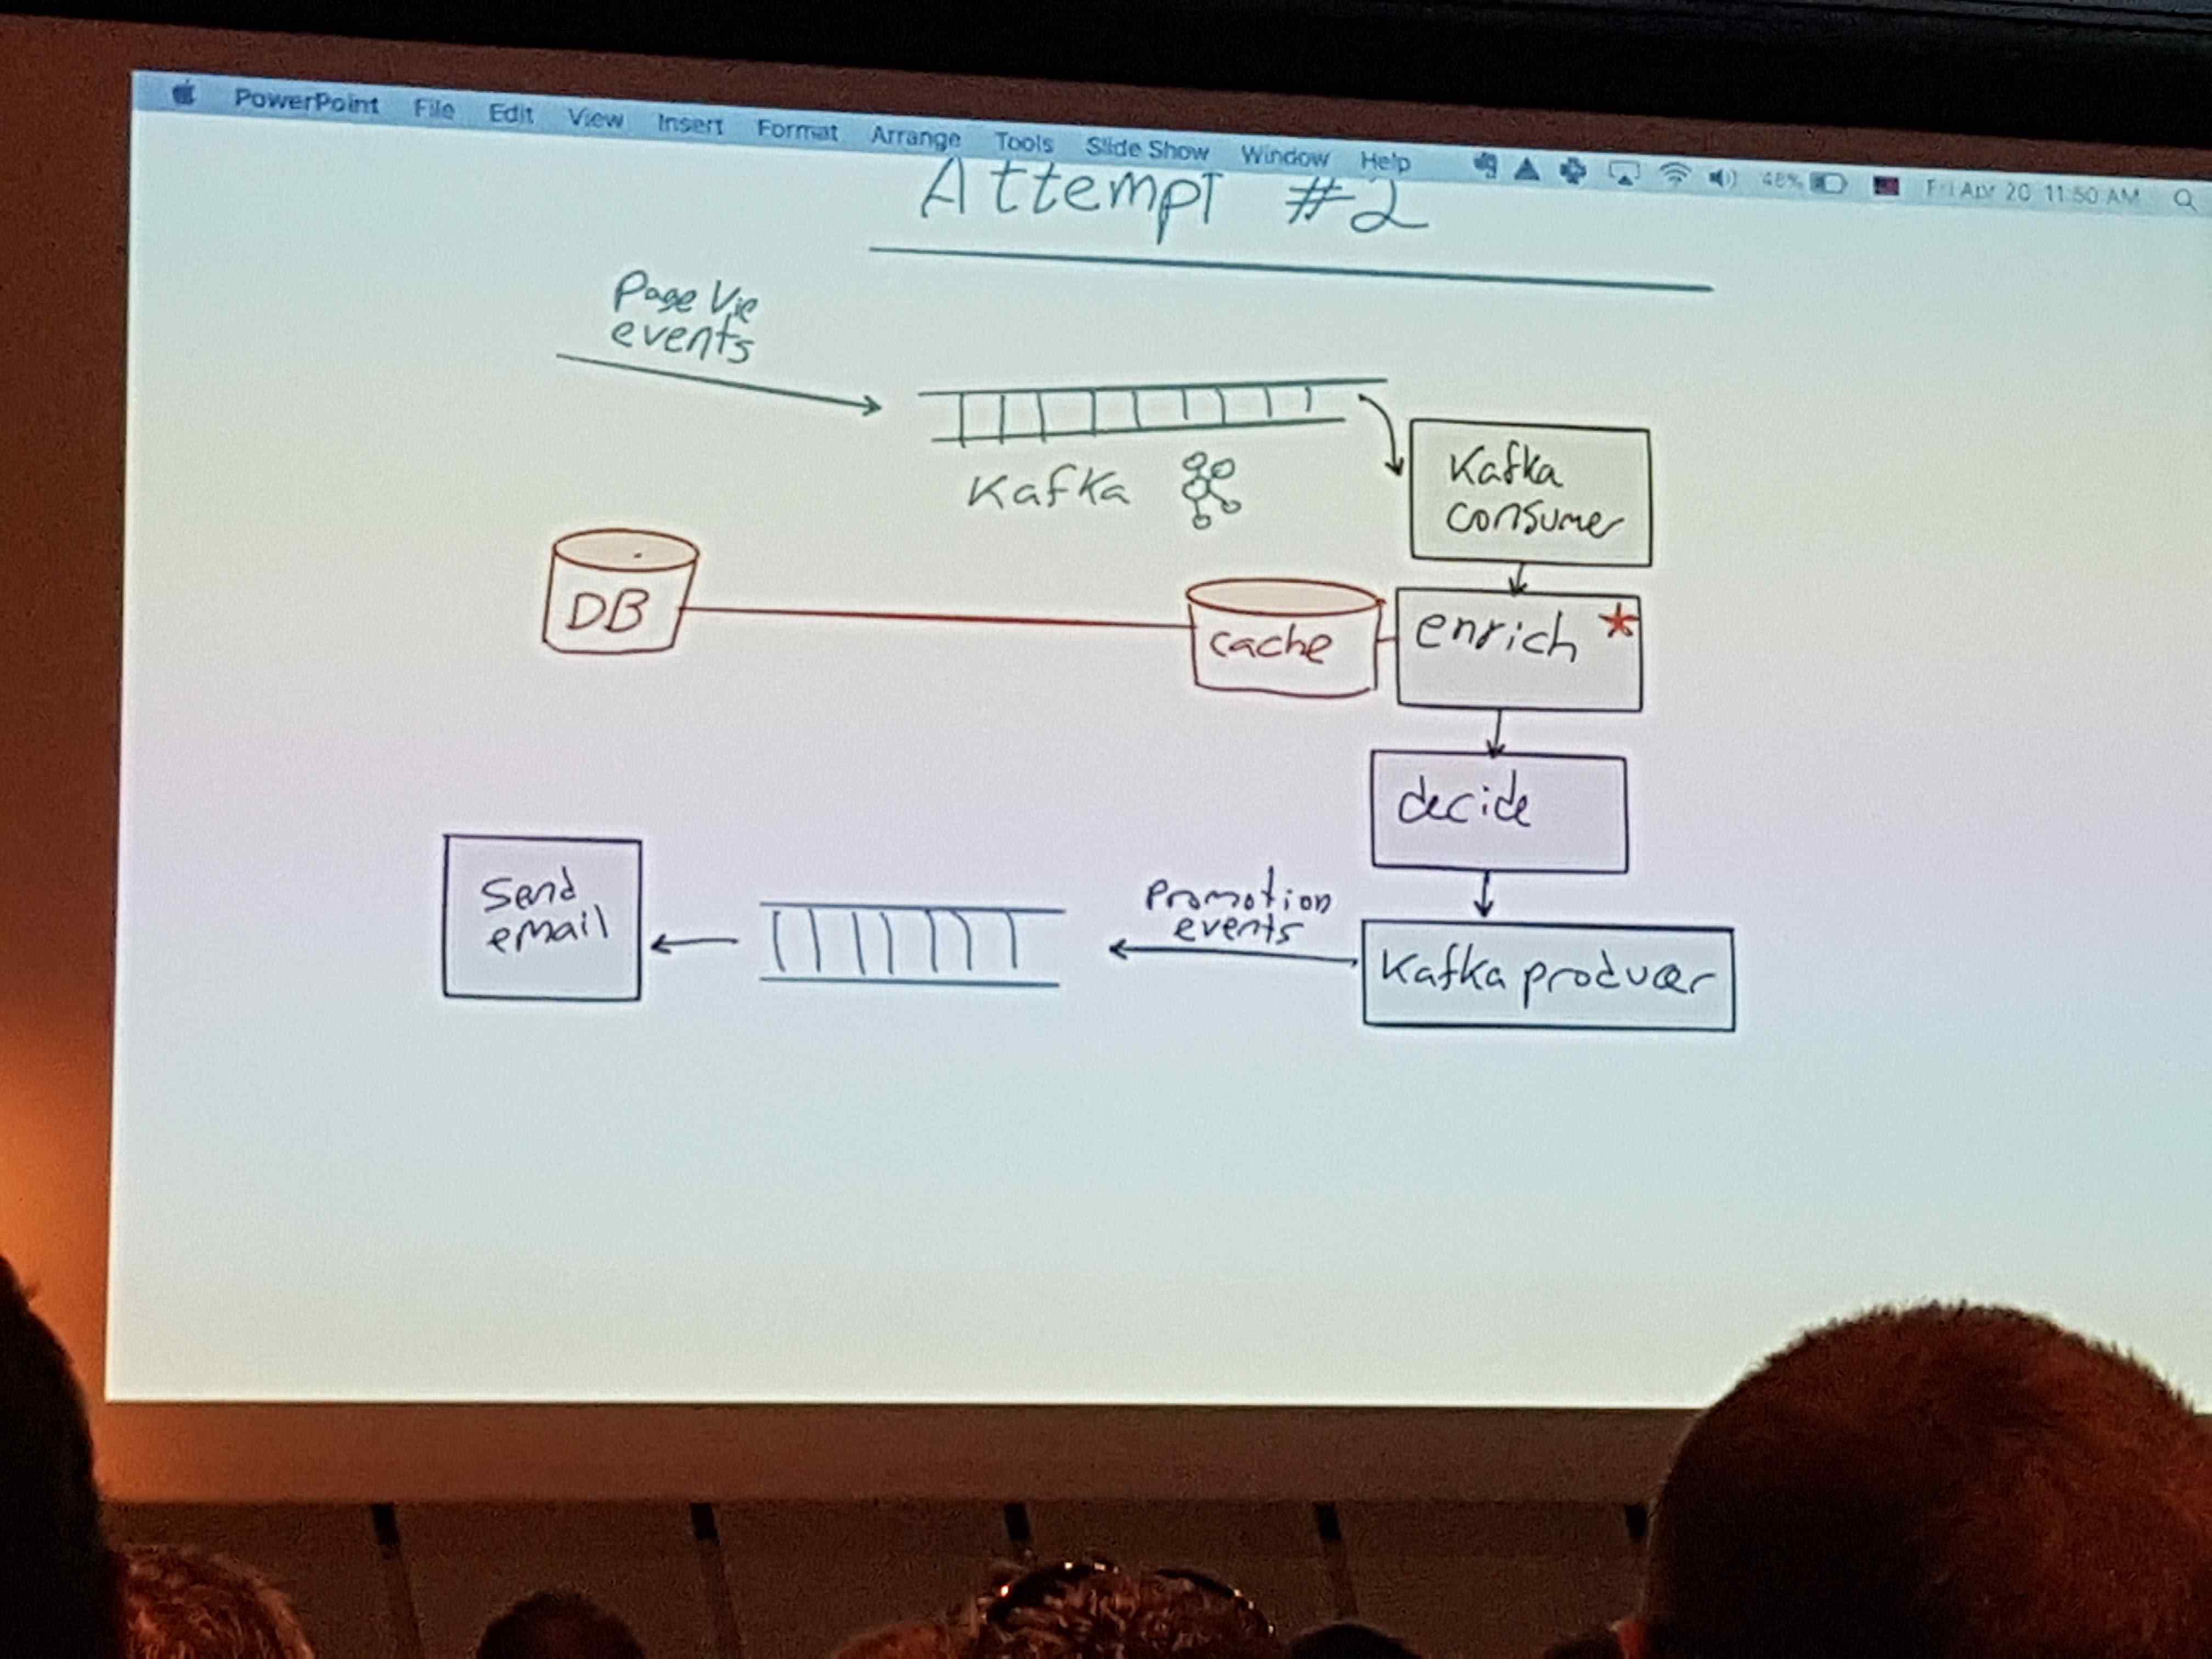 PowerPoint File Edit View Insert Format Arrange Tools Slide Show Window Help 48% Fri Apr 20 11:50 AM
Attempt #2
Page Vie
events
Kafka
Kafka
consumer
DB
cache
enrich *
decide
Send
email
Promotion
events
Kafka producer